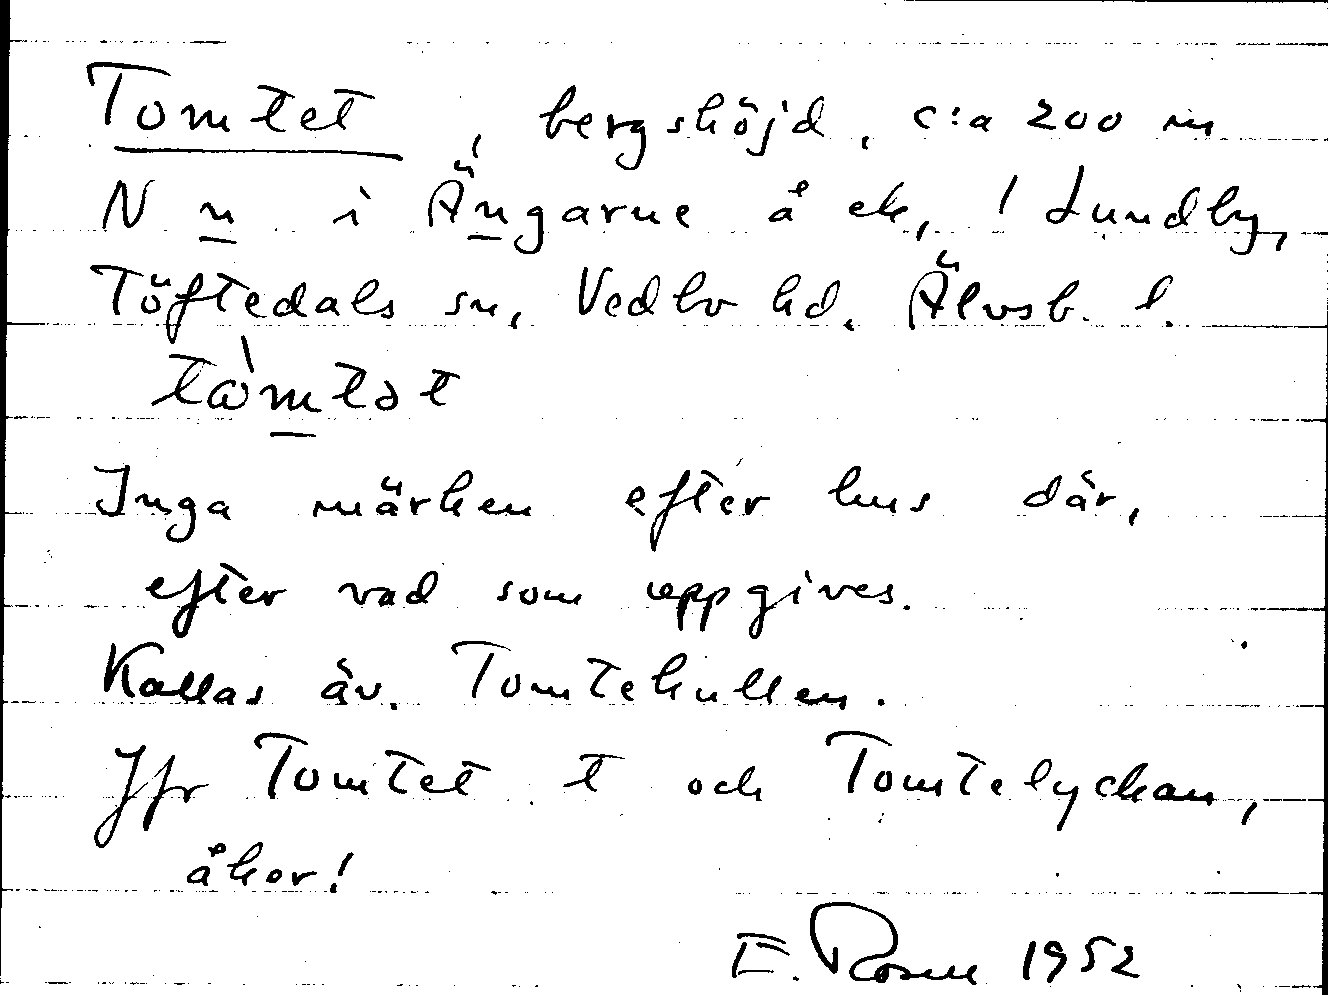 Tomtet, bergshöjd, c:a 200 m
N n i Ängarne å ek, ! Lundby,
Töftedals sn, Vedbo hd. Älvsb. l.
Inga märken efter hus där,
efter vad som uppgives.
Kallas äv. Tomtekullen.
Jfr Tomtet t och Tomtelyckan,
åkor!
E. Rosell 1952